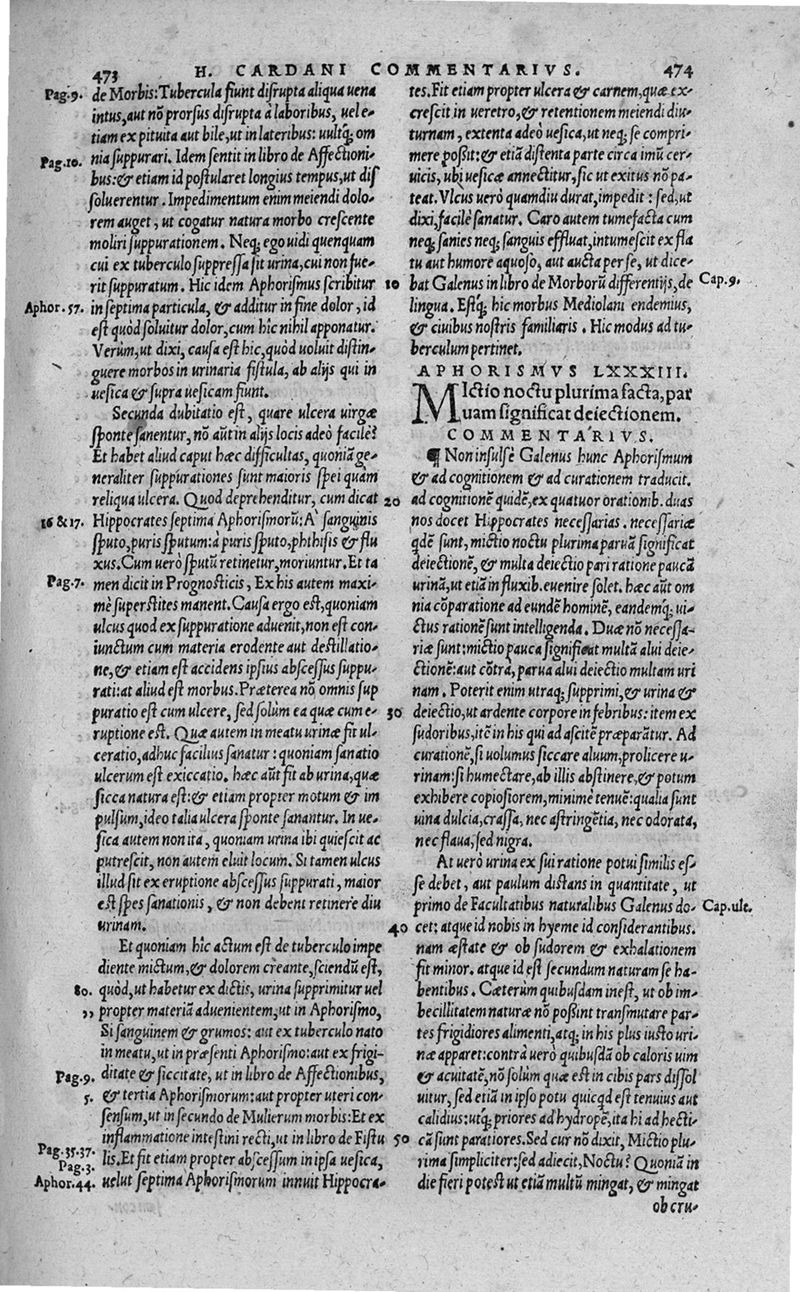 473 H. CARDANI COMMENTARIVS. 474
Pag.9. de Morbis: Tubercula fiunt disrupta aliqua uena
intus, aut nõ prorsus disrupta à laboribus, uel e-
tiam ex pituita aut bile, ut in lateribus: uultq; om
Pag.10. nia suppurari. Idem sentit in libro de Affectioni-
bus: & etiam id postularet longius tempus, ut dis
soluerentur. Impedimentum enim meiendi dolo-
rem auget, ut cogatur natura morbo crescente
moliri suppurationem. Neq; ego uidi quenquam
cui ex tuberculo suppressa sit urina, cui non fue-
rit suppuratum. Hic idem Aphorismus scribitur 10
Aphor.57. in septima particula, & additur in fine dolor, id
est quòd soluitur dolor, cum hîc nihil apponatur.
Verùm, ut dixi, causa est hic, quòd uoluit distin-
guere morbos in urinaria fistula, ab alijs qui in
uesica & supra uesicam fiunt.
Secunda dubitatio est, quare ulcera uirgæ
sponte sanentur, nõ aũt in alijs locis adeò facilè?
Et habet aliud caput hæc difficultas, quoniã ge-
neraliter suppurationes sunt maioris spei quàm
reliqua ulcera. Quod deprehenditur, cum dicat 20
16 & 17. Hippocrates septima Aphorismorũ: A' sanguinis
sputo, puris sputum: à puris sputo, phthisis & flu
xus. Cum uerò sputũ retinetur, moriuntur. Et ta
Pag.7. men dicit in Prognosticis, Ex his autem maxi-
mè superstites manent. Causa ergo est, quoniam
ulcus quod ex suppuratione aduenit, non est con-
iunctum cum materia erodente aut destillatio-
ne, & etiam est accidens ipsius abscessus suppu-
rati: at aliud est morbus. Præterea nõ omnis sup
puratio est cum ulcere, sed solùm ea quæ cum e- 30
ruptione est. Quæ autem in meatu urinæ fit ul-
ceratio, adhuc facilius sanatur: quoniam sanatio
ulcerum est exiccatio. hæc aũt fit ab urina, quæ
sicca natura est: & etiam propter motum & im
pulsum, ideo talia ulcera sponte sanantur. In ue-
sica autem non ita, quoniam urina ibi quiescit ac
putrescit, non autem eluit locum. Si tamen ulcus
illud sit ex eruptione abscessus suppurati, maior
est spes sanationis, & non debent retinere diu
urinam. 40
Et quoniam hîc actum est de tuberculo impe
diente mictum, & dolorem creante, sciendũ est,
80. quòd, ut habetur ex dictis, urina supprimitur uel
,, propter materiã aduenientem, ut in Aphorismo,
Si sanguinem & grumos: aut ex tuberculo nato
in meatu, ut in præsenti Aphorismo: aut ex frigi-
Pag.9. ditate & siccitate, ut in libro de Affectionibus,
5. & tertia Aphorismorum: aut propter uteri con-
sensum, ut in secundo de Mulierum morbis: Et ex
inflammatione intestini recti, ut in libro de Fistu 50
Pag.35.37.
Pag.3. lis. Et fit etiam propter abscessum in ipsa uesica,
Aphor.44. uelut septima Aphorismorum innuit Hippocra-
tes. Fit etiam propter ulcera & carnem, quæ ex-
crescit in ueretro, & retentionem meiendi diu-
turnam, extenta adeò uesica, ut neq; se compri-
mere possit: & etiã distenta parte circa imũ cer-
uicis, ubi uesicæ annectitur, sic ut exitus nõ pa-
teat. Vlcus uerò quamdiu durat, impedit: sed, ut
dixi, facilè sanatur. Caro autem tumefacta cum
neq; sanies neq; sanguis effluat, intumescit ex fla
tu aut humore aquoso, aut aucta per se, ut dice-
bat Galenus in libro de Morborũ differentijs, de Cap.9.
lingua. Estq; hic morbus Mediolani endemius,
& ciuibus nostris familiaris. Hic modus ad tu-
berculum pertinet.
APHORISMVS LXXXIII.
MIctio noctu plurima facta, par
uam significat deiectionem.
COMMENTARIVS.
¶ Non insulsè Galenus hunc Aphorismum
& ad cognitionem & ad curationem traducit.
ad cognitionẽ quidẽ, ex quatuor orationib. duas
nos docet Hippocrates necessarias. necessariæ
qdẽ sunt, mictio noctu plurima paruã significat
deiectionẽ, & multa deiectio pari ratione paucã
urinã, ut etiã in fluxib. euenire solet. hæc aũt om
nia cõparatione ad eundẽ hominẽ, eandemq́; ui-
ctus rationẽ sunt intelligenda. Duæ nõ necessa-
riæ sunt: mictio pauca significat multã alui deie-
ctionẽ: aut cõtrà, parua alui deiectio multam uri
nam. Poterit enim utraq; supprimi, & urina &
deiectio, ut ardente corpore in febribus: item ex
sudoribus, itẽ in his qui ad ascitẽ præparãtur. Ad
curationẽ, si uolumus siccare aluum, prolicere u-
rinam: si humectare, ab illis abstinere, & potum
exhibere copiosiorem, minimè tenuẽ: qualia sunt
uina dulcia, crassa, nec astringẽtia, nec odorata,
nec flaua, sed nigra.
At uerò urina ex sui ratione potui similis es-
se debet, aut paulum distans in quantitate, ut
primo de Facultatibus naturalibus Galenus do- Cap.ult.
cet: atque id nobis in hyeme id considerantibus.
nam æstate & ob sudorem & exhalationem
fit minor. atque id est secundum naturam se ha-
bentibus. Cæterùm quibusdam inest, ut ob im-
becillitatem naturæ nõ possint transmutare par-
tes frigidiores alimenti, atq; in his plus iusto uri-
næ apparet: contrà uerò quibusdã ob caloris uim
& acuitatẽ, nõ solùm quæ est in cibis pars dissol
uitur, sed etiã in ipso potu quicqd est tenuius aut
calidius: utq; priores ad hydropẽ, ita hi ad hecti-
cã sunt paratiores. Sed cur nõ dixit, Mictio plu-
rima simpliciter: sed adiecit, Noctu? Quoniã in
die fieri potest ut etiã multũ mingat, & mingat
ob cru-